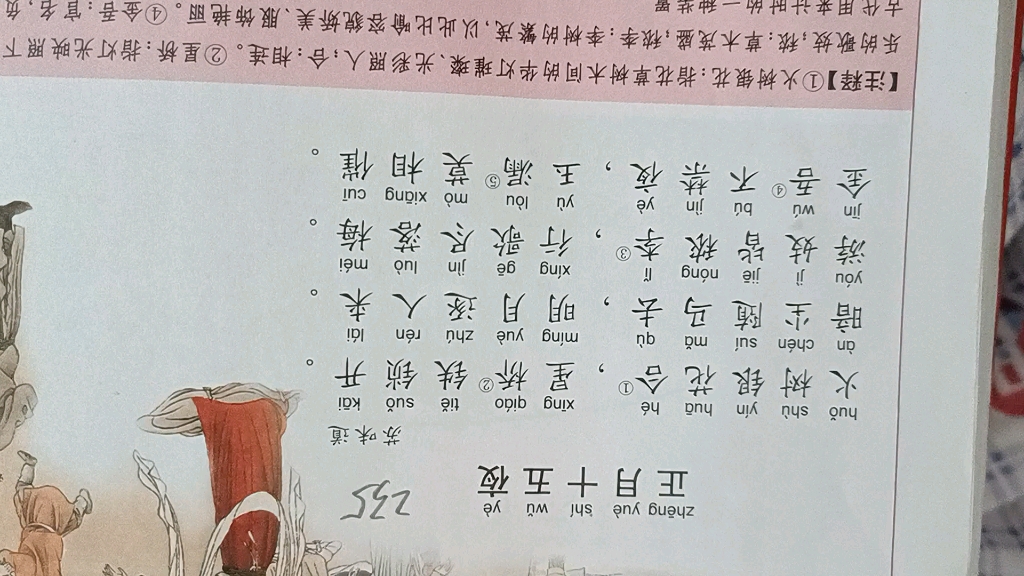 zhēng yuè shí wǔ yè
正月十五夜
235
苏味道
huǒ shù yín huā hé xīng qiáo tiě suǒ kāi
火树银花合①，星桥②铁锁开。
àn chén suí mǎ qù míng yuè zhú rén lái
暗尘随马去，明月逐人来。
yóu jì jiē nóng lǐ xíng gē jìn luò méi
游妓皆秾李③，行歌尽落梅。
jīn wú bú jìn yè yù lòu mò xiāng cuī
金吾④不禁夜，玉漏⑤莫相催。
【注释】①火树银花：指花草树木间的华灯璀璨、光彩照人；合：相连。②星桥：指灯光映照下
乐的歌妓；秾：草木茂盛；秾李：李树的繁茂，以此比喻容貌娇美、服饰艳丽。④金吾：官名，负
古代用来计时的一种装置